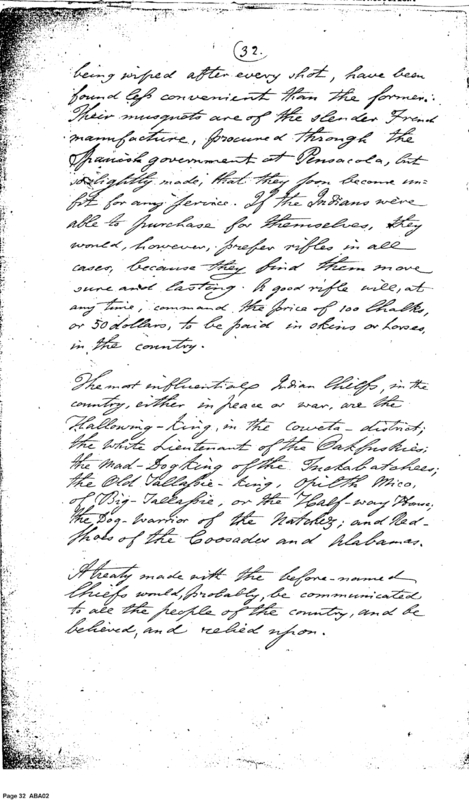 32.
being wiped after every shot, have been
found less convenient than the former.
Their musquets are of the slender French
manufacture, procured through the
Spanish government at Pensacola, but
so slightly made, that they soon become un-
fit for any service. If the Indians were
able to purchase for themselves, they
would, however, prefer rifles in all
cases, because they find them more
sure and lasting. A good rifle will, at
any time, command the price of 100 Chalks,
or 50 dollars, to be paid in skins or horses,
in the country.
The most influential Indian Chiefs, in the
country, either in peace or war, are the
Hallowing-King, in the Coweta-district;
the White Lieutenant of the Oakfuskies;
the Mad-Dog King of the Tuckabatchees;
the Old Tallassie-King, Opilth Mico,
of Big-Tallassie, or the Half-way House;
the Dog-Warrior of the Natchez; and Red-
Shoes of the Coosades and Alabamas.
A treaty made with the before-named
Chiefs would, probably, be communicated
to all the people of the country, and be
believed, and relied upon.
Page 32 ABA02